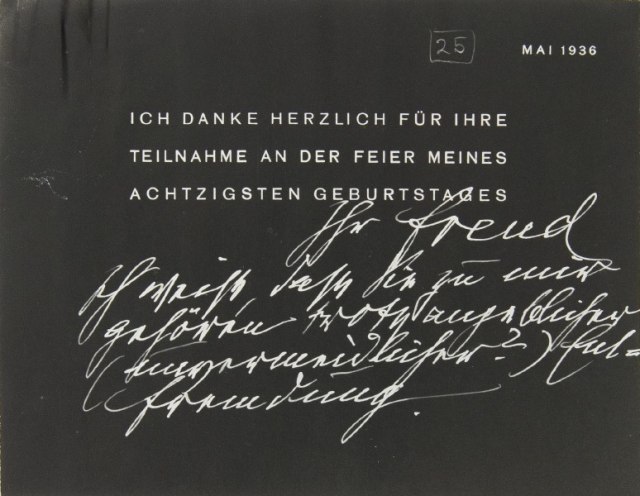 25
MAI 1936
ICH DANKE HERZLICH FÜR IHRE
TEILNAHME AN DER FEIER MEINES
ACHTZIGSTEN GEBURTSTAGES
Ihr freud
Ich weiß, daß Sie zu mir
gehören trotz angeblicher
(unvermeidlicher?) Ent=
fremdung.